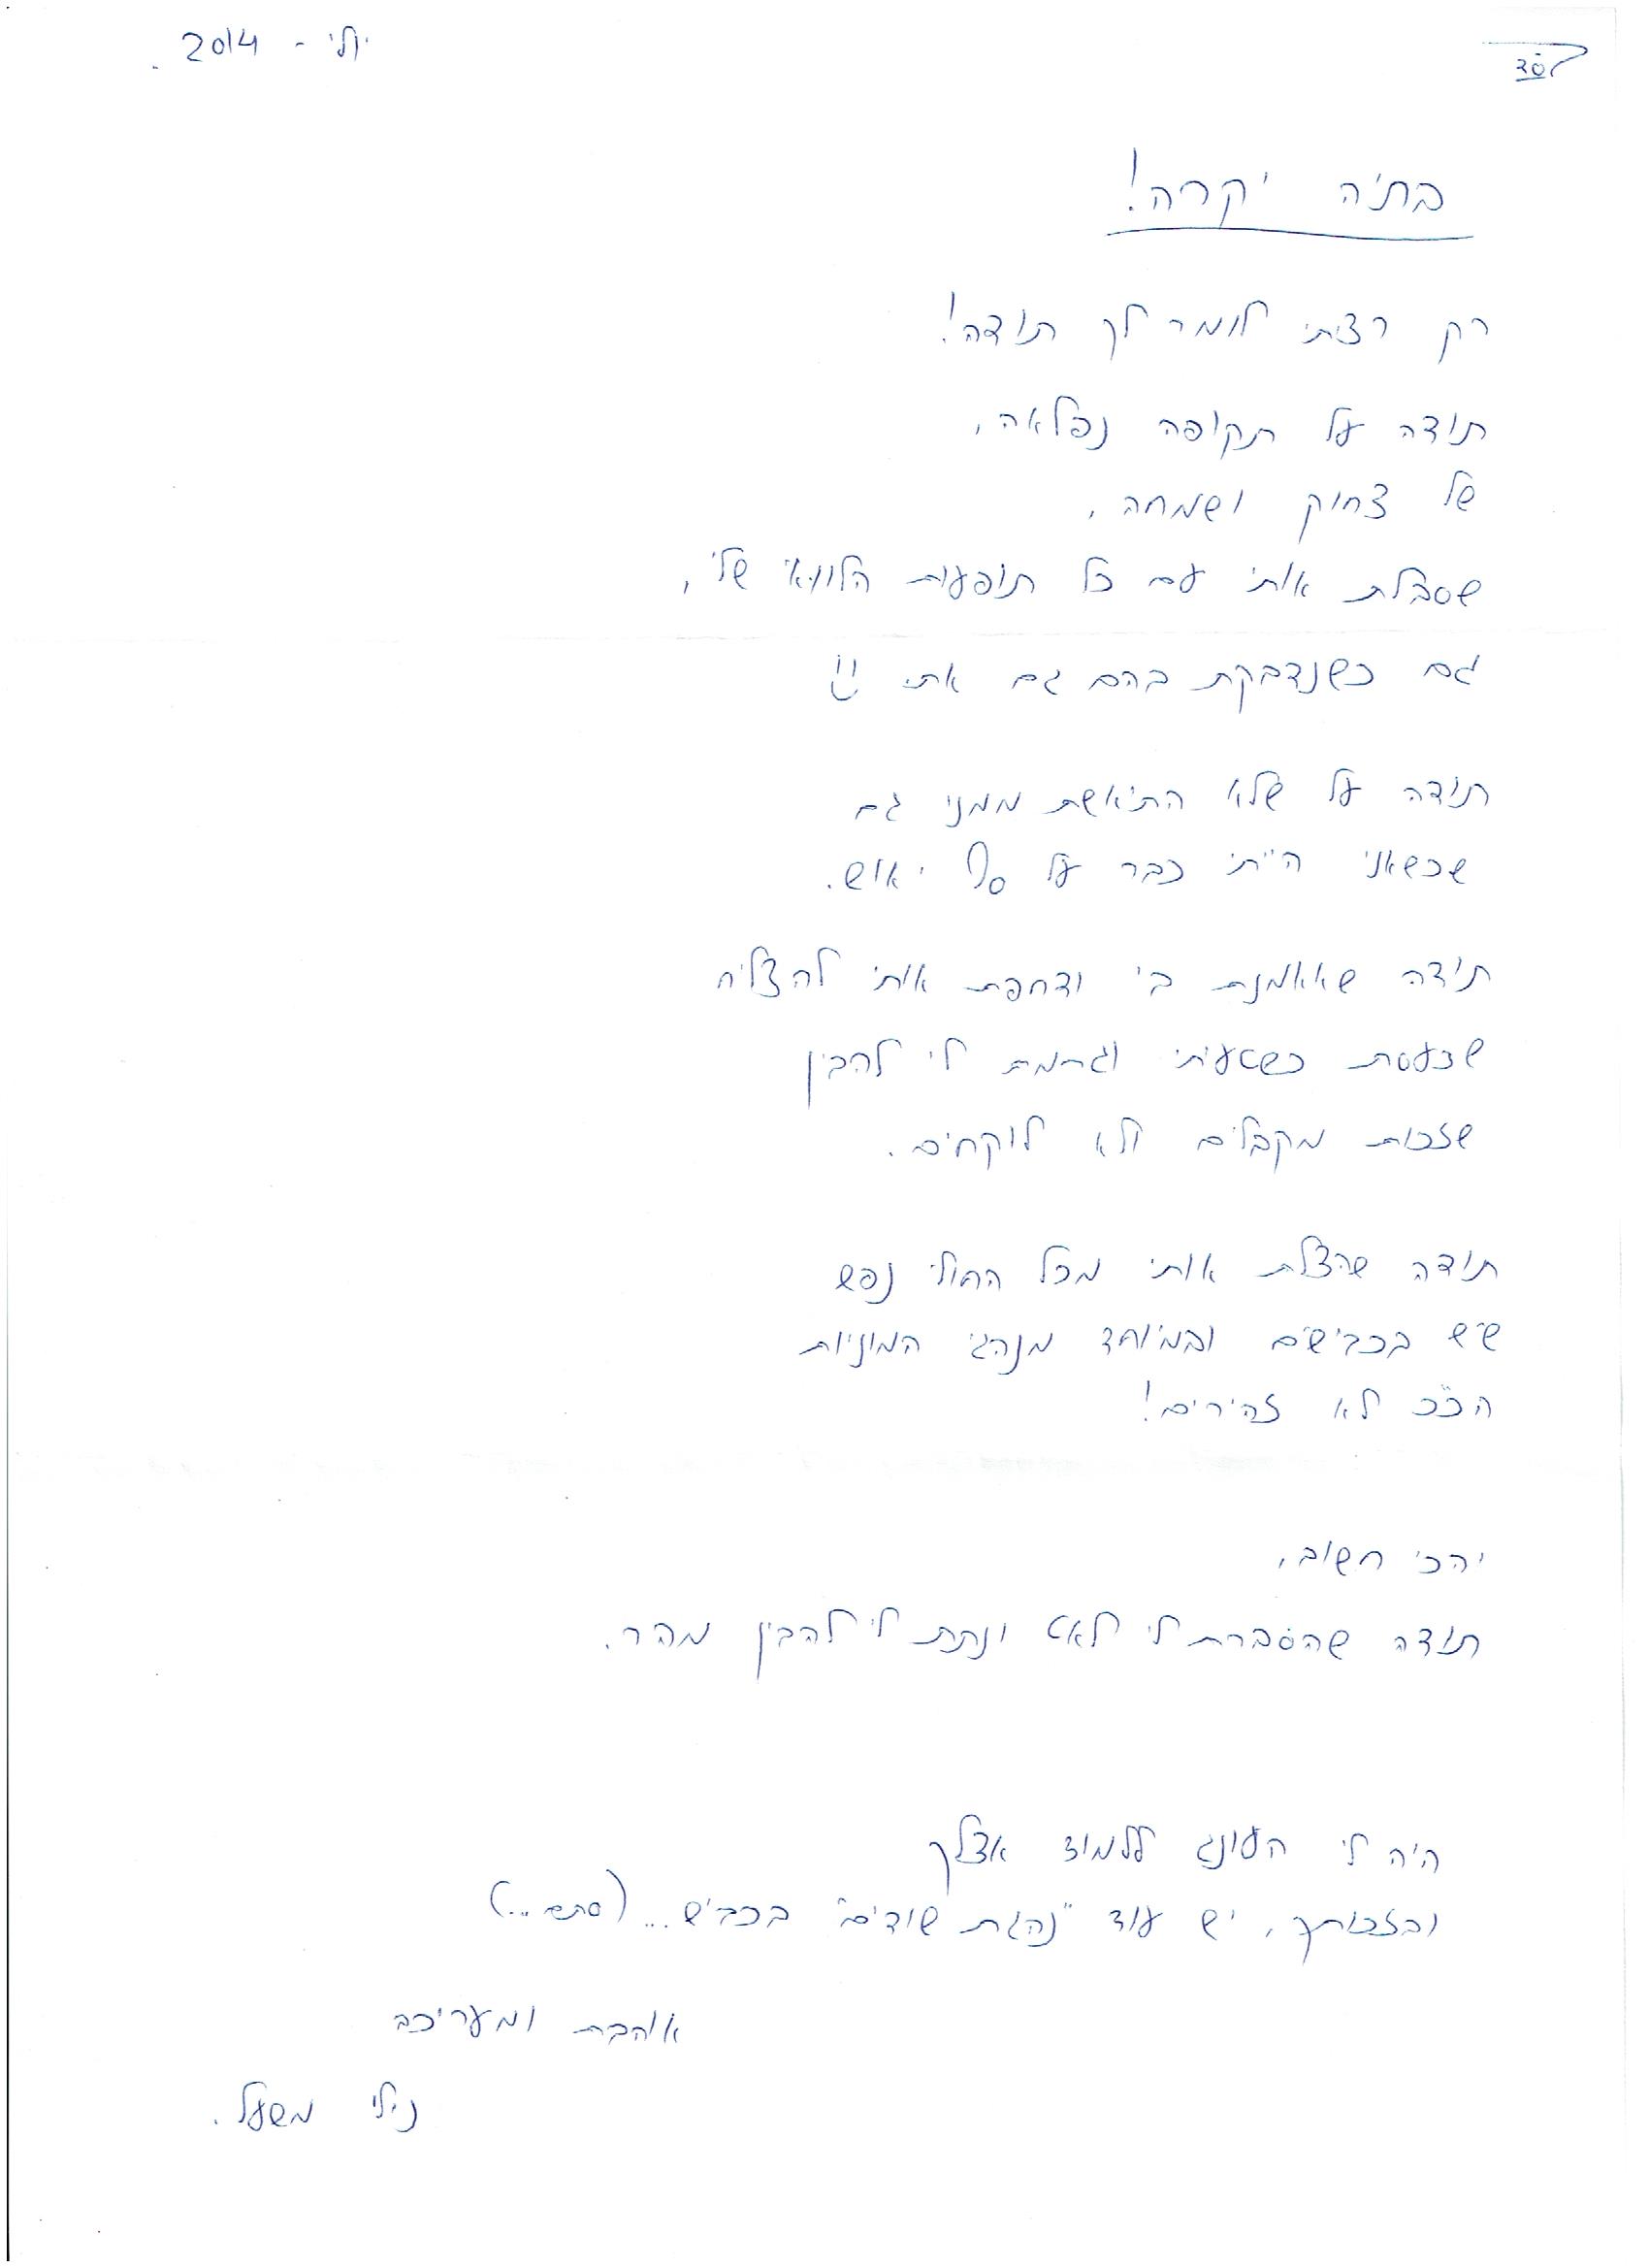 בס"ד
יולי - 2014.
בתיה יקרה!
רק רציתי לומר לך תודה!
תודה על תקופה נפלאה,
של צחוק ושמחה,
שסבלת אותי עם כל תופעות הלוואי שלי,
גם כשנדבקת בהם גם את :)
תודה על שלא התיאשת ממני גם
שכשאני הייתי כבר על סף יאוש.
תודה שהאמנת בי ודחפת אותי להצליח
שכעסת כשטעיתי וגרמת לי להבין
שזכות מקבלים ולא לוקחים.
תודה שהצלת אותי מכל החולי נפש
שיש בכבישים ובמיוחד מנהגי המוניות
הכ"כ לא זהירים!
והכי חשוב,
תודה שהסברת לי לאט ונתת לי להבין מהר.
היה לי העונג ללמוד אצלך
ובזכותך, יש עוד "נהגת שודים" בכביש... (סתם...)
אוהבת ומעריכה
נילי משעל.